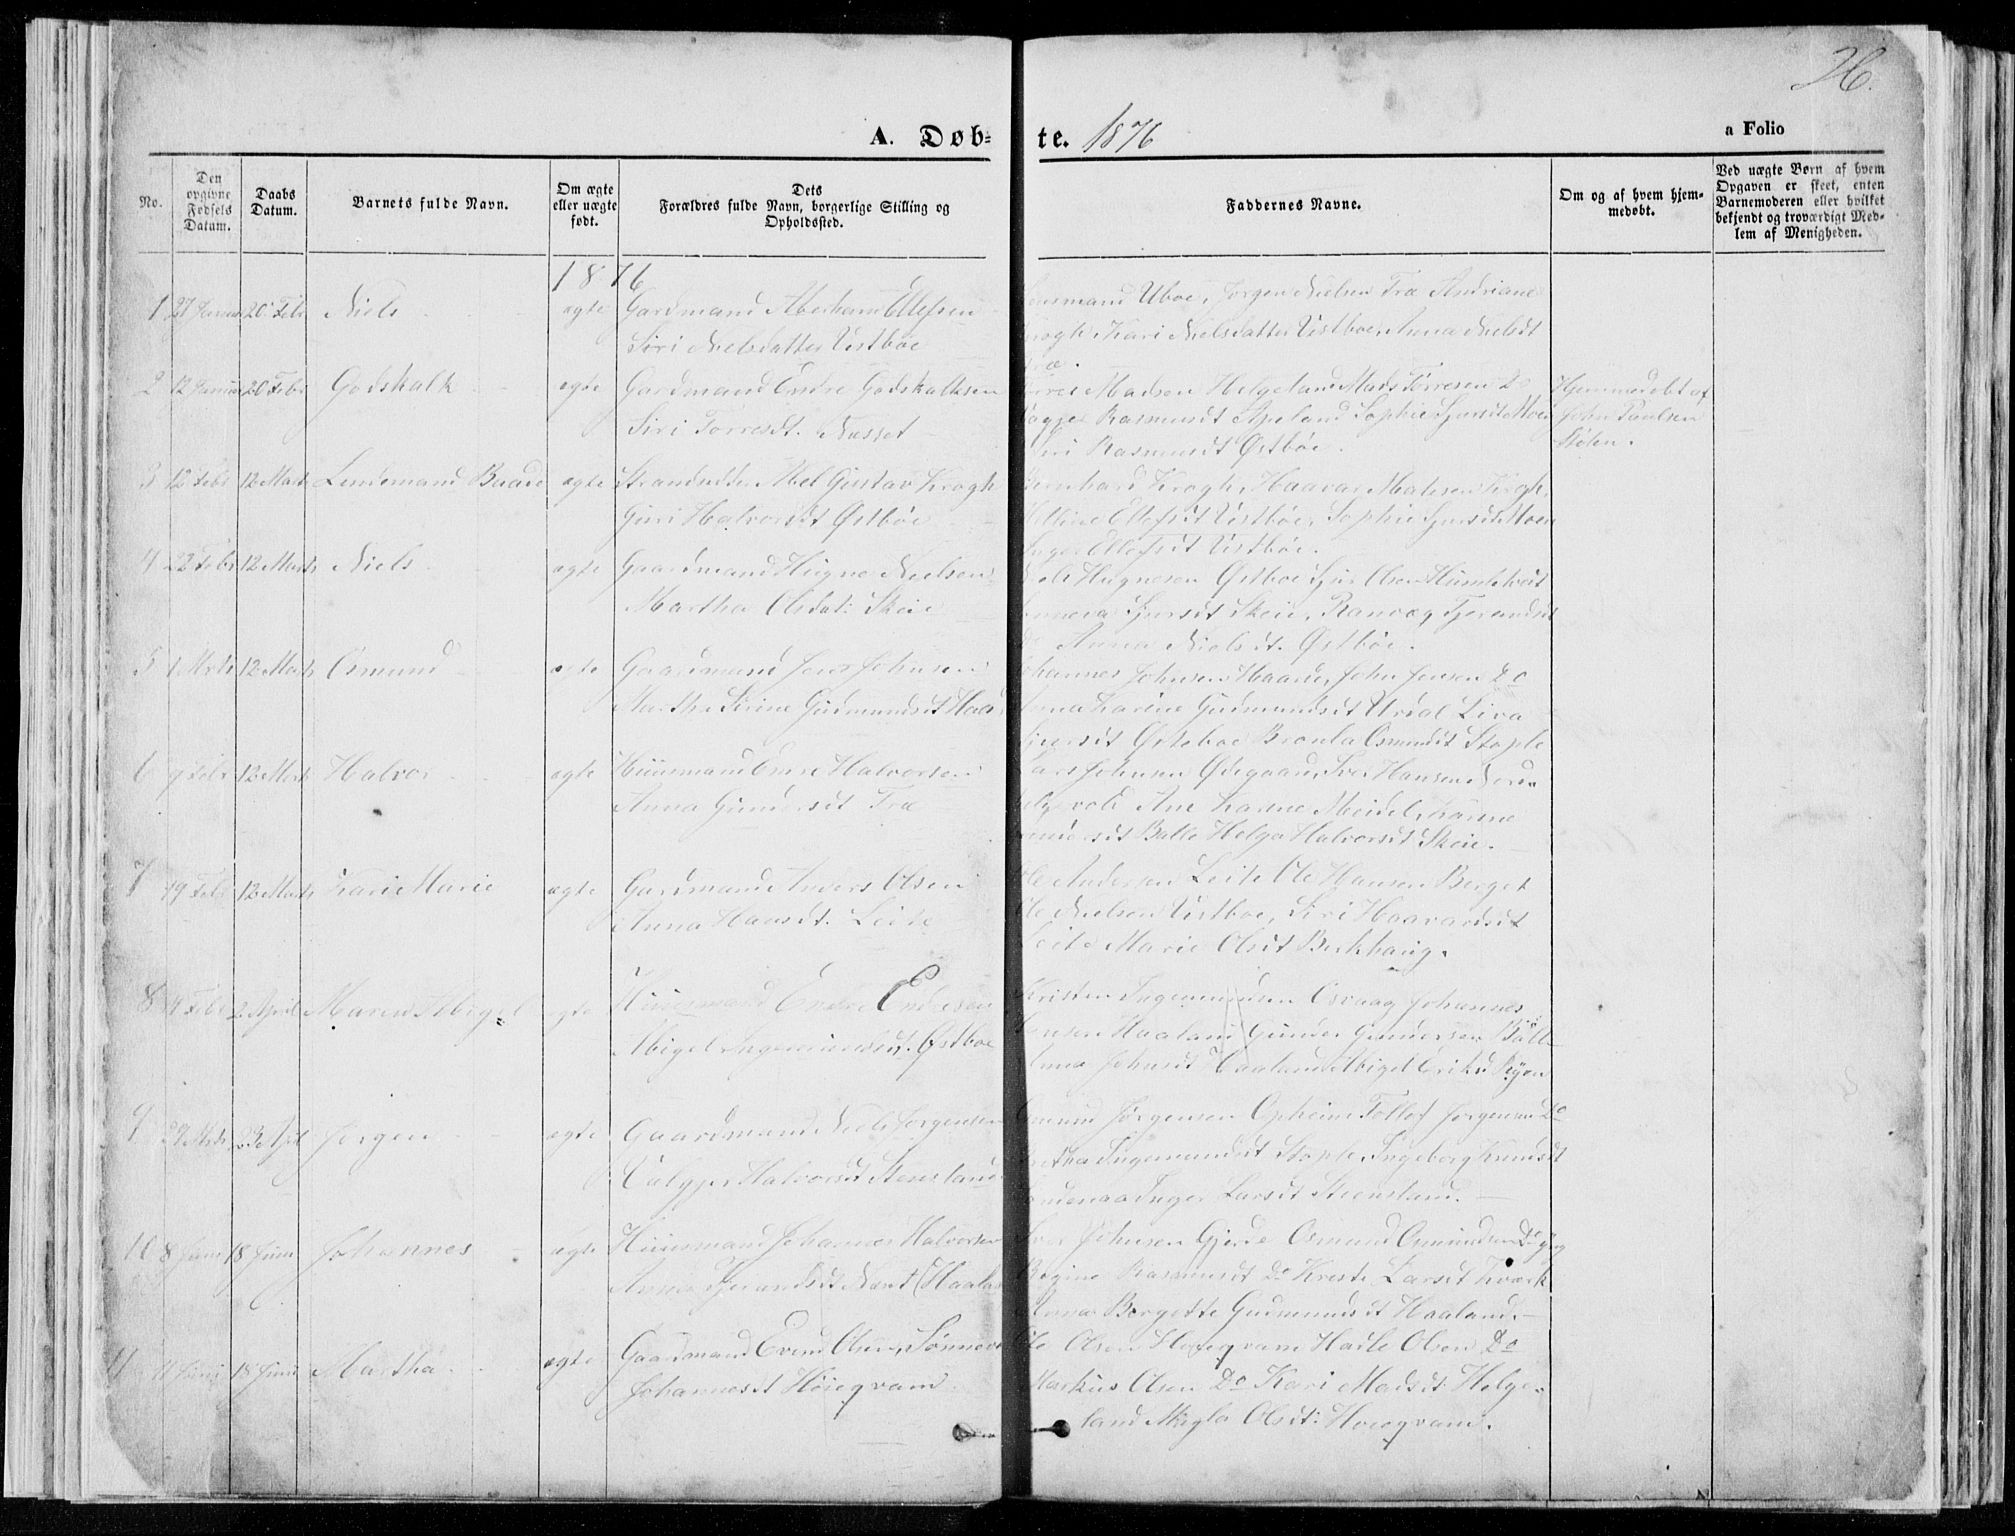 26.
A. Døb-
te. 1876
a Folio
No.
Den opgivne Fødsels Datum.
Daabs Datum.
Barnets fulde Navn.
Om ægte eller uægte født.
Dets Forældres fulde Navn, borgerlige Stilling og Opholdssted.
Faddernes Navne.
Om og af hvem hjem-
medøbt.
Ved uægte Børn af hvem
Opgaven er skeet, enten
Barnemoderen eller hvilket
bekjendt og troværdigt Med-
lem af Menigheden.
1876
1 27 Januar 20 Febr Niels ægte Gardmand Aberham Ellefsen
Siri Nielsdatter Vestbøe
Uboe, Jørgen Nielsen Træ Andriane
Krogh, Kari Nielsdatter Vestboe, Anna Nielsdt
Træ.
2 12 Januar 20 Febr Godskalk ægte Gardmand Endre Godskalksen
Siri Torresdt. Næsset
Madsen Helgeland Mads Torresen Do
Rasmusdt Apeland Sophie Sjursdt Moen
Siri Rasmusdt Østbøe.
Hjemmedøbt af
John Paulsen
Stølen.
3 12 Febr 12 Marts Lindemand Baade ægte Strandsidder Abel Gustav Krogh
Guri Halvorsdt Østbøe
Bernhard Krogh, Haavar Madsen Krogh,
Ellefsdt Vestbøe, Sophie Sjursdt Moen
Inger Ellefsdt Vestbøe.
4 22 Febr 12 Marts Niels ægte Gaardmand Hugne Nielsen
Martha Olsdat: Skeie
Niels Hugnesen Østboe Sjur Olsen
Sjursdt Skeie, Ranvæg Tjerandsdt
Do Anna Nielsdt. Østbøe.
5 1 Mrts 12 Marts Osmund ægte Gaardmand Jens Johnsen
Martha Sirine Gudmundsdt Haa
Johannes Johnsen Haaland, John Jensen Do
Anna Karine Gudmundsdt Urdal Liva
Sjursdt Østeboe Bronla Osmundsdt Stople
6 7 Febr 12 Marts Halvor ægte Huusmand Endre Halvorsen
Anna Gundersdt Træ
Lars Johnsen Ødegaard, Iver Hansen
Ane Karine Meidel, Karine
Gundersdt Balle Helga Halvorsdt Skeie.
7 19 Febr 12 Marts Kari Marie ægte Gardmand Anders Olsen
Anna Hansdt. Leite
Ole Andersen Leite Ole Hansen Berget
Ole Nielsen Vestboe, Siri Haavardsdt
Leite Marie Olsdt Berkhaug.
8 14 Febr 2 April Maren Abigel ægte Huusmand Endre Endresen
Abigel Ingemundsdt. Østboe
Kristen Ingemundsen Osvaag Johannes
Jensen Haaland Gunder Gundersen Balle
Anna Johnsdt Haaland Abigel Eriksdt
9 29 Mrts 23 April Jørgen ægte Gaardmand Niels Jørgensen
Valgjer Halvorsdt Steensland
Osmund Jørgensen Opheim Tollof Jørgensen Do
Ingemundsdt Stople, Ingeborg Knudsdt
Inger Larsdt Steensland.
10 8 Juni 18 Juni Johannes ægte Huusmand Johannes Halvorsen
Anna Tjerandsdt
Iver Johnsen Gjerde Osmund Osmundsen Do
Regine Rasmusdt Do Kirsti Larsdt Kvark
Anna Bergette Gudmundsdt Haaland.
11 11 Juni 18 Juni Martha ægte Gaardmand Evend Olsen, Sønneve
Johannesdt Høieqvam
Ole Olsen Høieqvam Hadle Olsen Do
Markus Olsen Do Kari Madsdt Helge-
land Olsdt: Høieqvam.